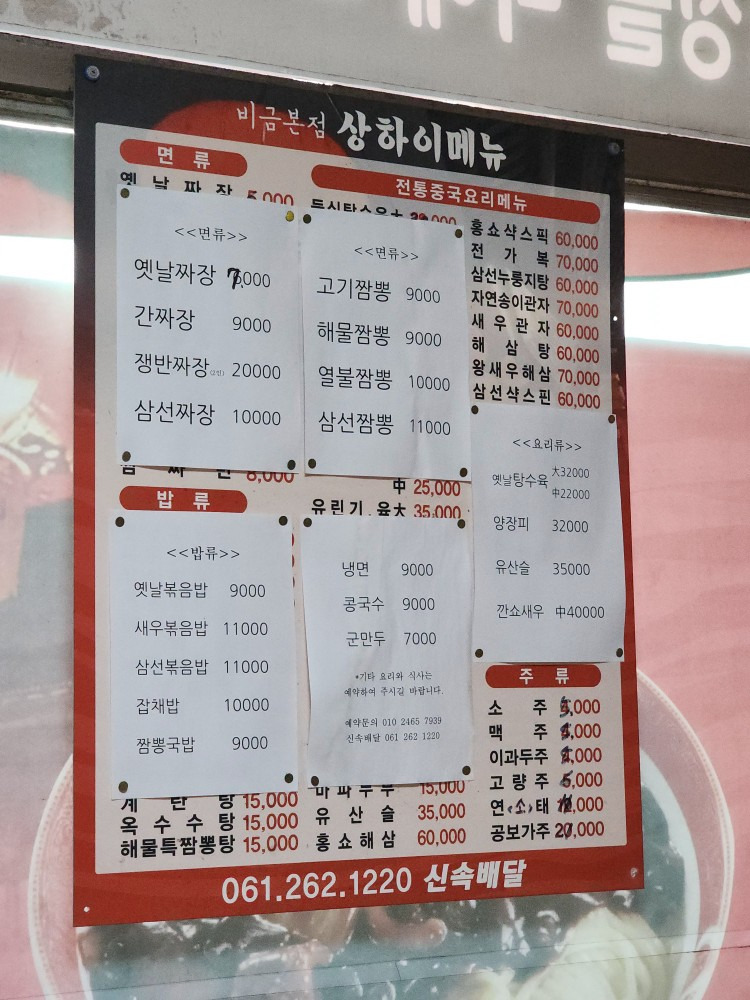 비금본점 상하이메뉴
면 류
전통중국요리메뉴
옛 날 짜 장 5,000
<<면류>>
옛날짜장 7,000
간짜장 9000
쟁반짜장(2인) 20000
삼선짜장 10000
<<면류>>
고기짬뽕 9000
해물짬뽕 9000
열불짬뽕 10000
삼선짬뽕 11000
홍쇼샥스픽 60,000
전 가 복 70,000
삼선누룽지탕 60,000
자연송이관자 70,000
새 우 관 자 60,000
해 삼 탕 60,000
왕새우해삼 70,000
삼선샥스핀 60,000
8,000
中 25,000
유린기.육大 35,000
밥 류
<<밥류>>
옛날볶음밥 9000
새우볶음밥 11000
삼선볶음밥 11000
잡채밥 10000
짬뽕국밥 9000
냉면 9000
콩국수 9000
군만두 7000
*기타 요리와 식사는
예약하여 주시길 바랍니다.
예약문의 010 2465 7939
신속배달 061 262 1220
<<요리류>>
옛날탕수육 大32000
中22000
양장피 32000
유산슬 35000
깐쇼새우 中40000
주 류
소 주 ,000
맥 주 ,000
이과두주 ,000
고 량 주 ,000
연 소 태 ,000
공보가주 ,000
계 란 탕 15,000
옥 수 수 탕 15,000
해물특짬뽕탕 15,000
마 파 두 부 15,000
유 산 슬 35,000
홍 쇼 해 삼 60,000
061.262.1220 신속배달